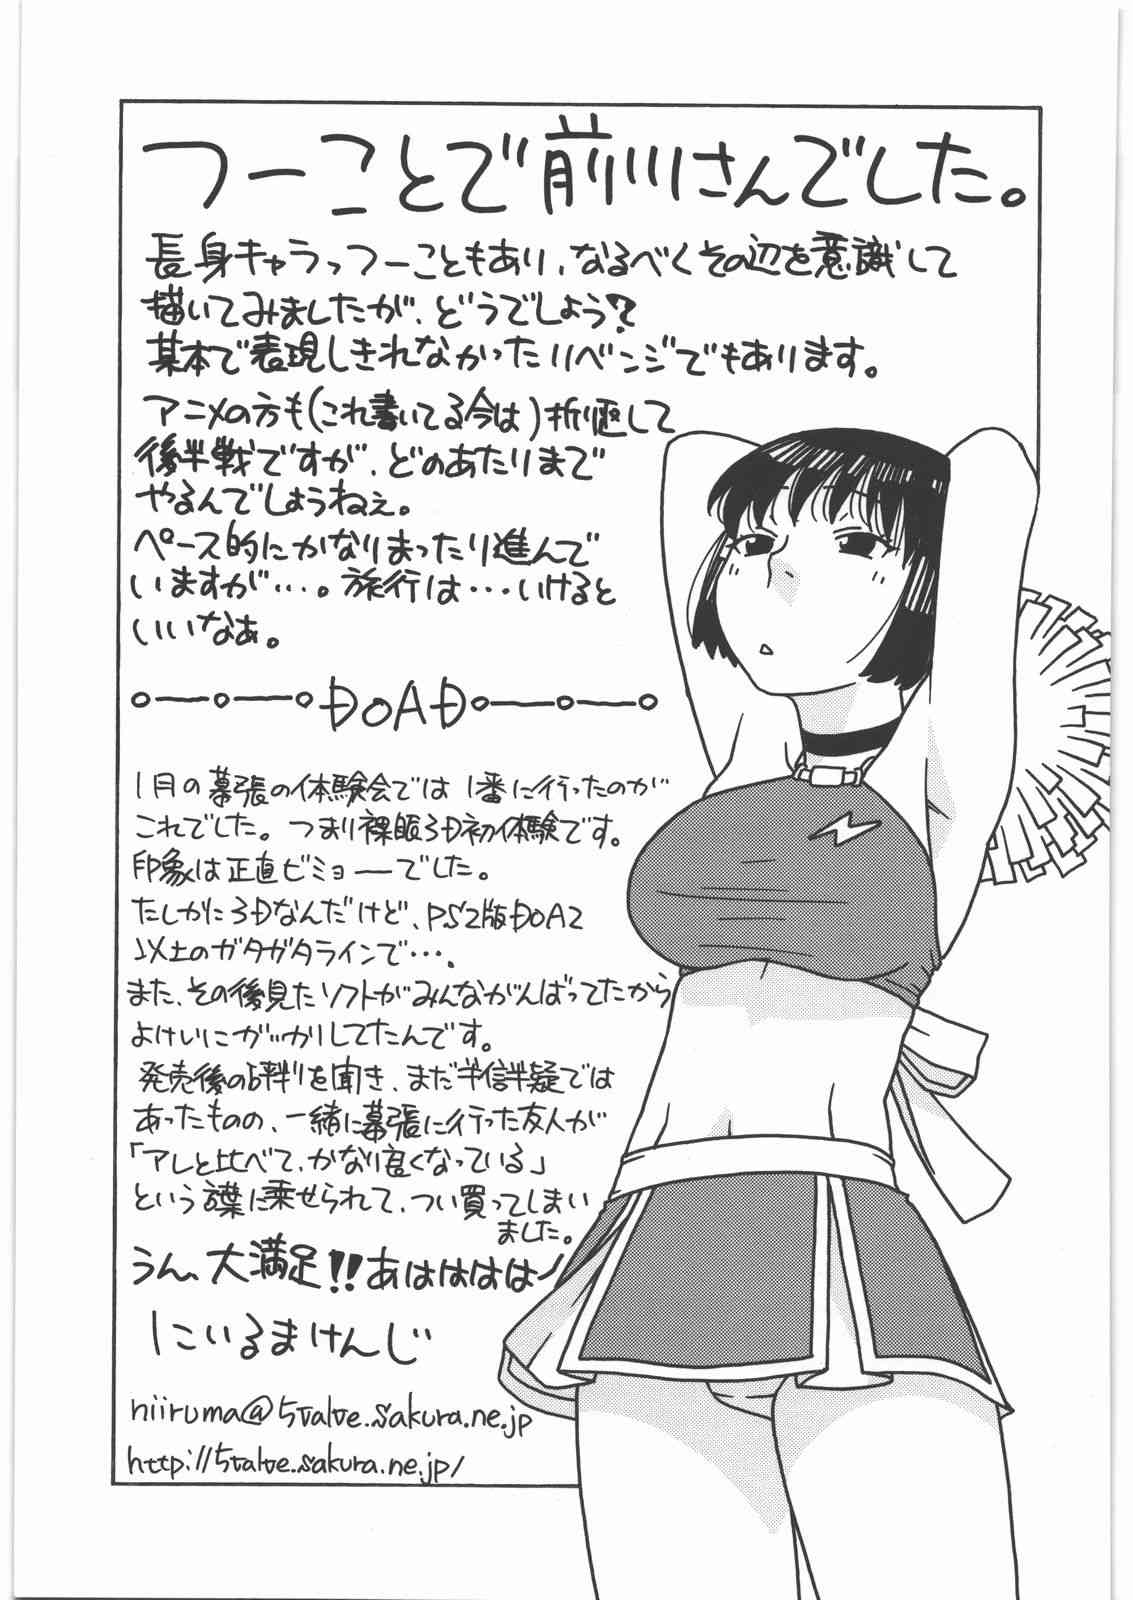 つーことで前川さんでした。
長身キャラっつーこともあり、なるべくその辺を意識して
描いてみましたが、どうでしょう?
某本で表現しきれなかったリベンジでもあります。
アニメの方も(これ書いてる今は)折り返して
後半戦ですが、どのあたりまで
やるんでしょうねぇ。
ペース的にかなりまったり進んで
いますが・・・。旅行は・・・いけると
いいなぁ。
DOAD
1月の幕張の体験会では1番に行ったのが
これでした。つまり裸眼3D初体験です。
印象は正直ビミョーでした。
たしかに3Dなんだけど、PS2版DOA2
以上のガタガタラインで・・・。
また、その後見たソフトがみんながんばってたから
よけいにガッカリしてたんです。
発売後の評判を聞き、まだ半信半疑では
あったものの、一緒に幕張に行った友人が
「アレと比べて、かなり良くなっている」
という言葉に乗せられて、つい買ってしまい
ました。
うん、大満足!!あはははは
にいるまけんじ
niiruma@5valve.sakura.ne.jp
http://5valve.sakura.ne.jp/